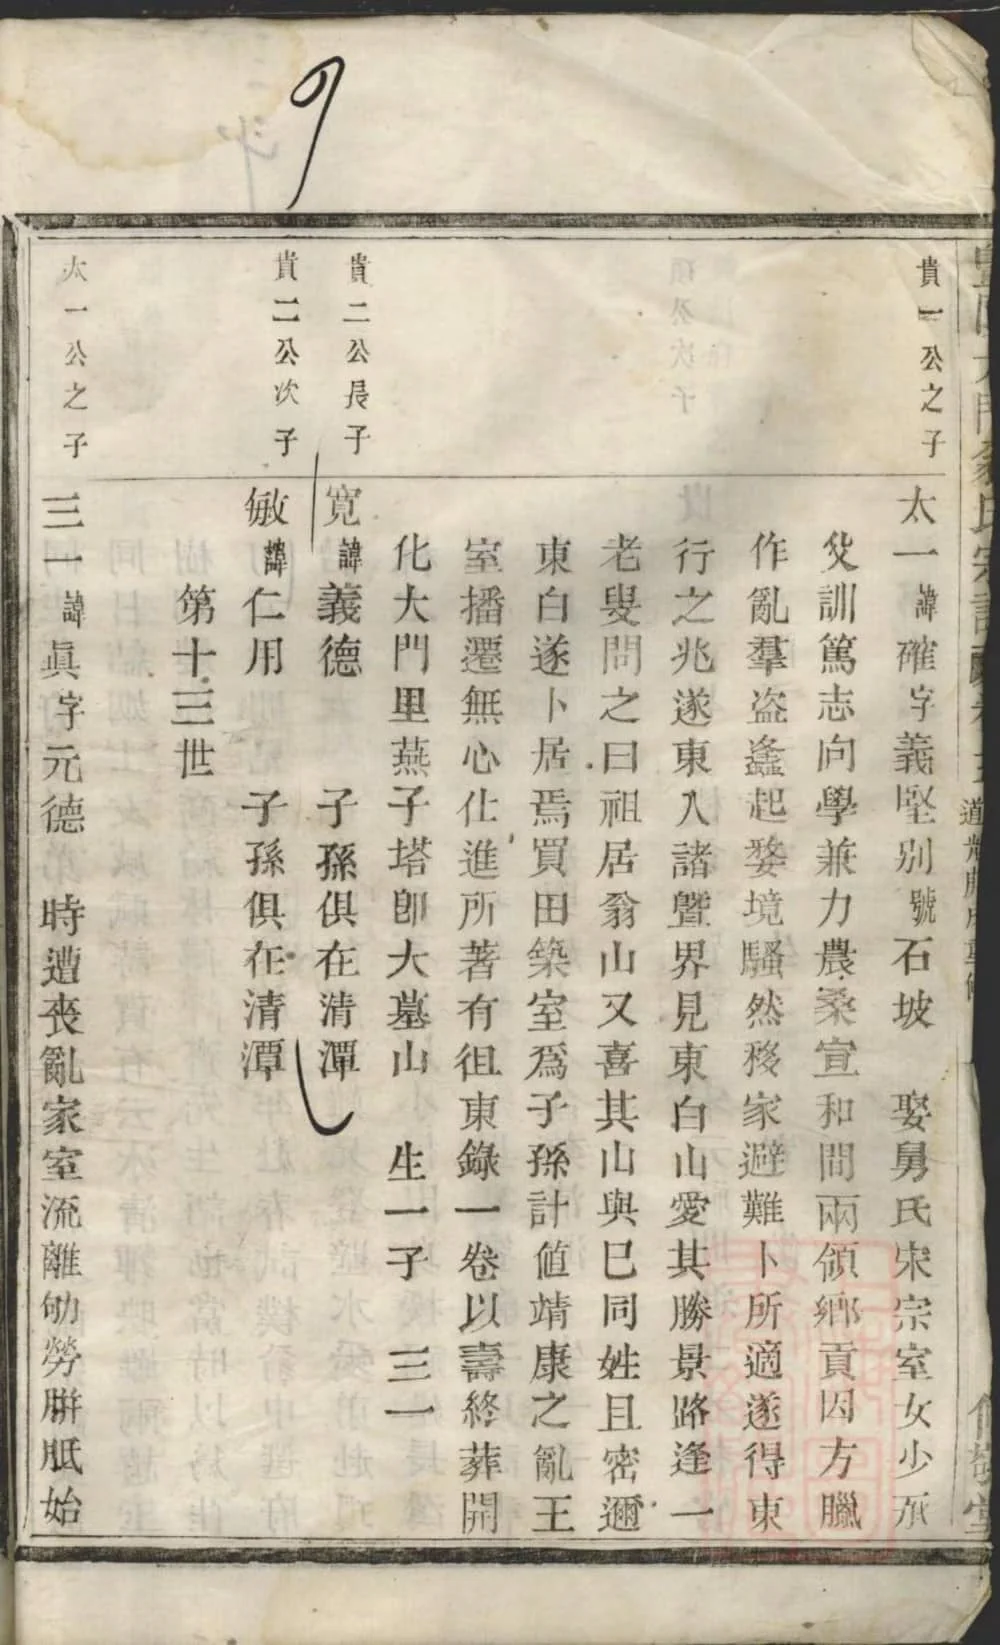 貴一公之子
太一諱確字義堅别號石坡 娶舅氏宋宗室女少承
父訓篤志向學兼力農桑宣和間兩領鄉貢因方臘
作亂羣盗蠭起婺境騷然移家避難卜所適遂得東
行之兆遂東入諸曁界見東白山愛其勝景路逢一
老叟問之曰祖居翁山又喜其山與巳同姓且密邇
東白遂卜居焉買田築室爲子孫計値靖康之亂王
室播遷無心仕進所著有徂東錄一卷以壽終葬開
化大門里燕子塔卽大墓山 生一子 三一
貴二公長子
寬諱義德 子孫俱在清潭
貴二公次子
敏諱仁用 子孫俱在清潭
第十三世
太一公之子
三一諱眞字元德 時遭喪亂家室流離劬勞胼胝始